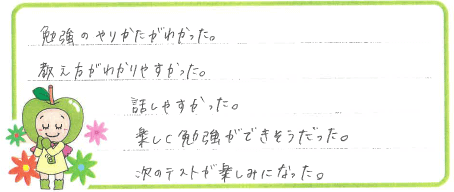 勉強のやりかたがわかった。
教え方がわかりやすかった。
話しやすかった。
楽しく勉強ができそうだった。
次のテストが楽しみになった。